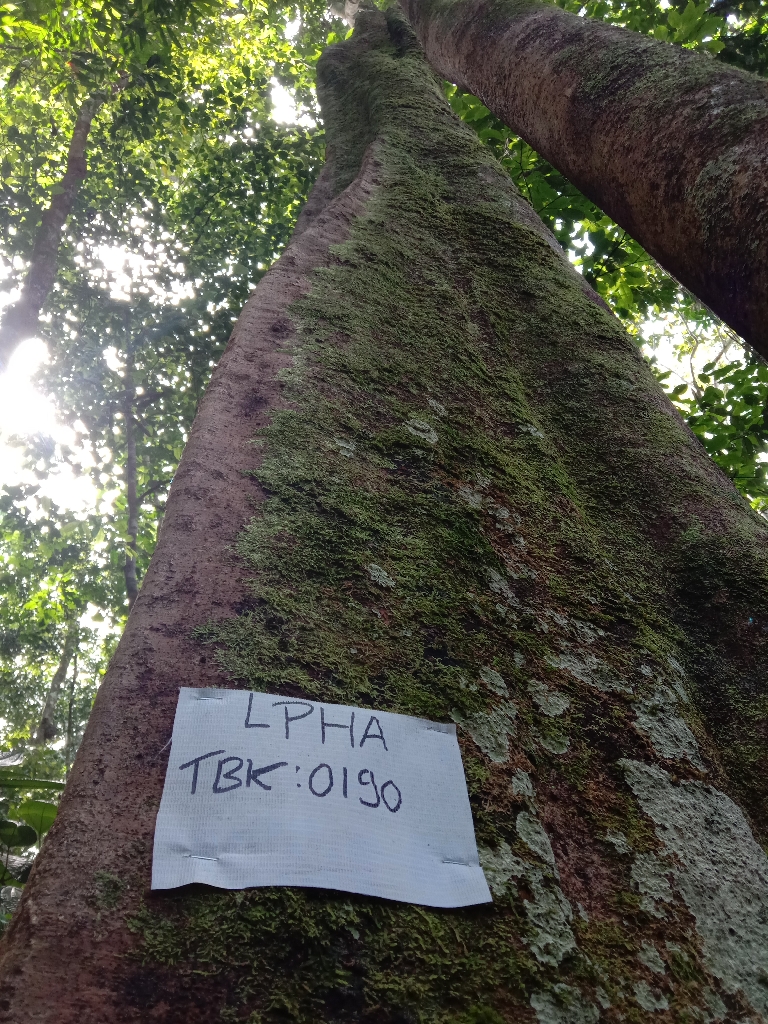 LPHA
TBK:0190